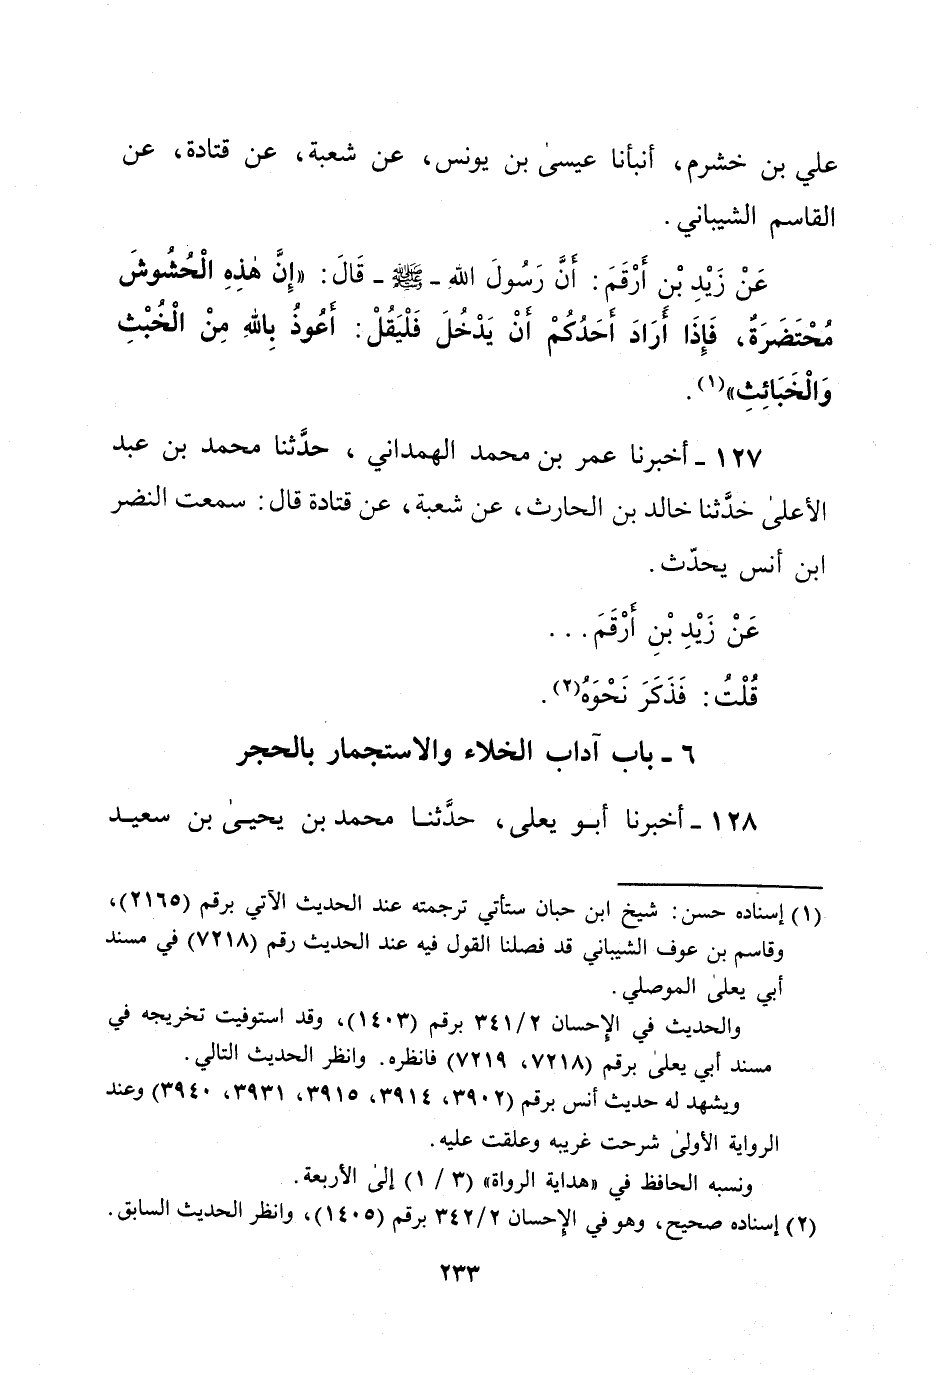 علي بن خشرم، أنبأنا عيسىٰ بن يونس، عن شعبة، عن قتادة، عن
القاسم الشيباني.
عَنْ زَيْدِ بْنِ أَرْقَمَ: أَنَّ رَسُولَ الله ـ ﷺ ـ قَالَ: «إِنَّ هٰذِهِ الْحُشُوشَ
مُحْتَضَرَةٌ، فَإِذَا أَرَادَ أَحَدُكُمْ أَنْ يَدْخُلَ فَلْيَقُلْ: أَعُوذُ بِاللهِ مِنْ الْخُبْثِ
وَالْخَبَائِثِ»(١).
١٢٧ ـ أخبرنا عمر بن محمد الهمداني ، حدَّثنا محمد بن عبد
الأعلىٰ حدَّثنا خالد بن الحارث، عن شعبة، عن قتادة قال: سمعت النضر
ابن أنس يحدّث.
عَنْ زَيْدِ بْنِ أَرْقَمَ...
قُلْتُ: فَذَكَرَ نَحْوَهُ(٢).
٦ ـ باب آداب الخلاء والاستجمار بالحجر
١٢٨ ـ أخبرنا أبـو يعلى، حدَّثنـا محمد بن يحيـىٰ بن سعيـد
(١) إسناده حسن: شيخ ابن حبان ستأتي ترجمته عند الحديث الآتي برقم (٢١٦٥)،
وقاسم بن عوف الشيباني قد فصلنا القول فيه عند الحديث رقم (٧٢١٨) في مسند
أبي يعلىٰ الموصلي.
والحديث في الإحسان ٣٤١/٢ برقم (١٤٠٣)، وقد استوفيت تخريجه في
مسند أبي يعلىٰ برقم (٧٢١٨، ٧٢١٩) فانظره. وانظر الحديث التالي.
ويشهد له حديث أنس برقم (٣٩٠٢، ٣٩١٤، ٣٩١٥، ٣٩٣١، ٣٩٤٠) وعند
الرواية الأولىٰ شرحت غريبه وعلقت عليه.
ونسبه الحافظ في «هداية الرواة» (٣ / ١) إلىٰ الأربعة.
(٢) إسناده صحيح، وهو في الإحسان ٣٤٢/٢ برقم (١٤٠٥)، وانظر الحديث السابق.
٢٣٣